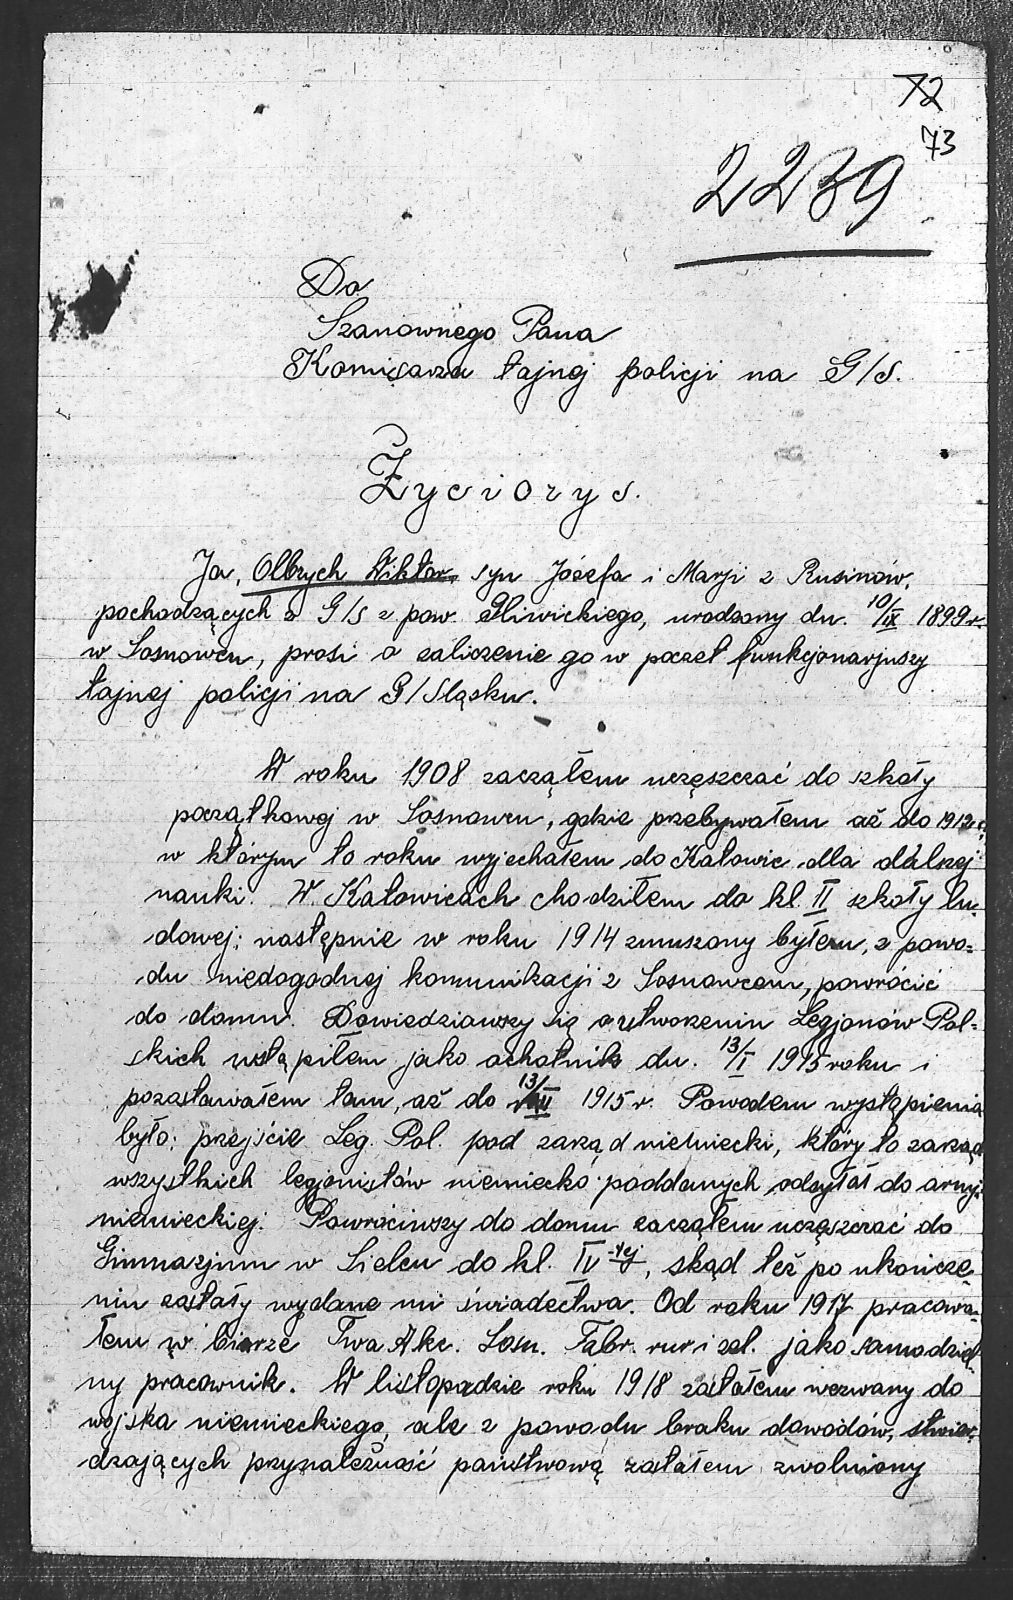 72
73
2239
Do
Szanownego Pana
Komisarza tajnej policji na G/S.
Życiorys.
Ja, Olbrych Wiktor, syn Józefa i Marji z Rusinów,
pochodzących z G/S z pow. Gliwickiego, urodzony dn. 10/IX 1899 r.
w Sosnowcu, prosi o zaliczenie go w poczet funkcjonarjuszy
tajnej policji na G/Śląsku.
W roku 1908 zacząłem uczęszczać do szkoły
początkowej w Sosnowcu, gdzie przebywałem aż do 1912 r,
w którym to roku wyjechałem do Katowic dla dalszej
nauki. W Katowicach chodziłem do kl. II szkoły lu-
dowej; następnie w roku 1914 zmuszony byłem, z powo-
du niedogodnej komunikacji z Sosnowcem, powrócić
do domu. Dowiedziawszy się o utworzeniu Legjonów Pol-
skich wstąpiłem jako ochotnik dn. 13/I 1915 roku i
pozostawałem tam, aż do 13/VII 1915 r. Powodem wystąpienia
było: przejście Leg. Pol. pod zarząd niemiecki, który to zarząd
wszystkich legjonistów niemiecko poddanych odsyłał do armji
niemieckiej. Powróciwszy do domu zacząłem uczęszczać do
Gimnazjum w Sielcu do kl. IV-tej, skąd też po ukończe-
niu zostały wydane mi świadectwa. Od roku 1917 pracowa-
łem w biurze Twa Akc. Sosn. Fabr. rur i żel. jako samodziel-
ny pracownik. W listopadzie roku 1918 zostałem wezwany do
wojska niemieckiego, ale z powodu braku dowodów, stwier-
dzających przynależność państwową zostałem zwolniony